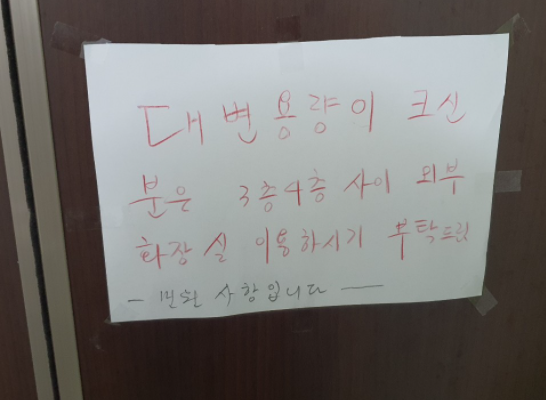 대변용량이 크신
분은 3층4층 사이 외부
화장실 이용하시기 부탁드림
- 민원 사항입니다 -